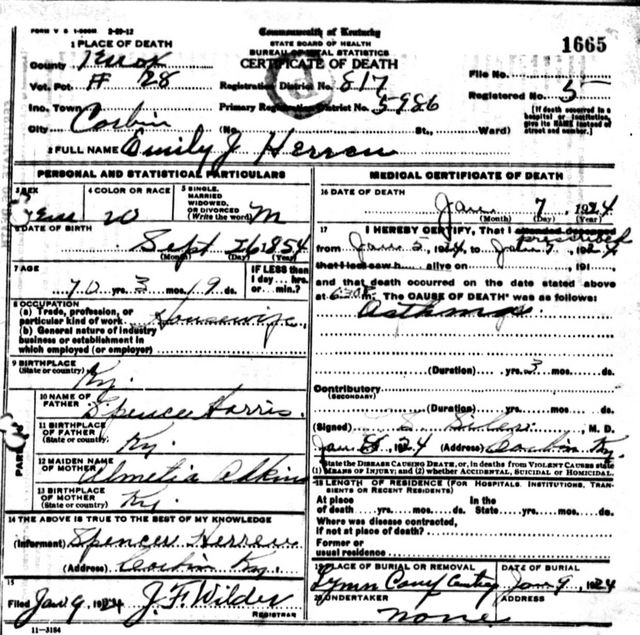 FORM V S 1-
Commonwealth of Kentucky
STATE BOARD OF HEALTH
BUREAU OF VITAL STATISTICS
CERTIFICATE OF DEATH
1665
1 PLACE OF DEATH
County Knox
Vot. Pct # 28
Registration District No. 817
File No.
Inc. Town
Primary Registration District No. 5986
Registered No. 5
City Corbin (No. St., Ward)
[If death occurred in a hospital or institution, give its NAME instead of street and number.]
2 FULL NAME Emily J Herren
PERSONAL AND STATISTICAL PARTICULARS
3 SEX
Fem
4 COLOR OR RACE
W
5 SINGLE, MARRIED WIDOWED, OR DIVORCED (Write the word) M
6 DATE OF BIRTH
Sept 26 1854
(Month) (Day) (Year)
7 AGE
70 yrs. 3 mos. 19 ds.
IF LESS than 1 day... hrs. or... min.?
8 OCCUPATION
(a) Trade, profession, or particular kind of work Housewife
(b) General nature of industry business or establishment in which employed (or employer)
9 BIRTHPLACE
(State or country) Ky.
PARENTS
10 NAME OF FATHER Spence Harris.
11 BIRTHPLACE OF FATHER (State or country) Ky.
12 MAIDEN NAME OF MOTHER Almetia Adkins
13 BIRTHPLACE OF MOTHER (State or country) Ky.
14 THE ABOVE IS TRUE TO THE BEST OF MY KNOWLEDGE
(Informant) Spencer Herren
(Address) Corbin Ky.
15
Filed Jan 9 1924 J. F. Wilder
REGISTRAR
11-3184
MEDICAL CERTIFICATE OF DEATH
16 DATE OF DEATH
Jan. 7, 1924
(Month) (Day) (Year)
17 I HEREBY CERTIFY, That I attended deceased prescribed
from Jan 5, 1924 to Jan 7, 1924
that I last saw h... alive on, 191
and that death occurred on the date stated above
at 630 P m. The CAUSE OF DEATH* was as follows:
Asthma.
(Duration) yrs. 3 mos. ds.
Contributory
(SECONDARY)
(Duration) yrs. mos. ds.
(Signed) M. D.
Jan 1924 (Address) Corbin Ky.
*State the DISEASE CAUSING DEATH, or, in deaths from VIOLENT CAUSES state (1) MEANS OF INJURY; and (2) whether ACCIDENTAL, SUICIDAL or HOMICIDAL.
18 LENGTH OF RESIDENCE (FOR HOSPITALS, INSTITUTIONS, TRANSIENTS OR RECENT RESIDENTS)
At place of death yrs. mos. ds. In the State yrs. mos. ds.
Where was disease contracted, if not at place of death?
Former or usual residence
19 PLACE OF BURIAL OR REMOVAL
Lynn Camp
DATE OF BURIAL
Jan. 9, 1924
20 UNDERTAKER
none
ADDRESS